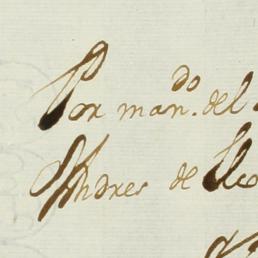 Por man.do del
Andres de